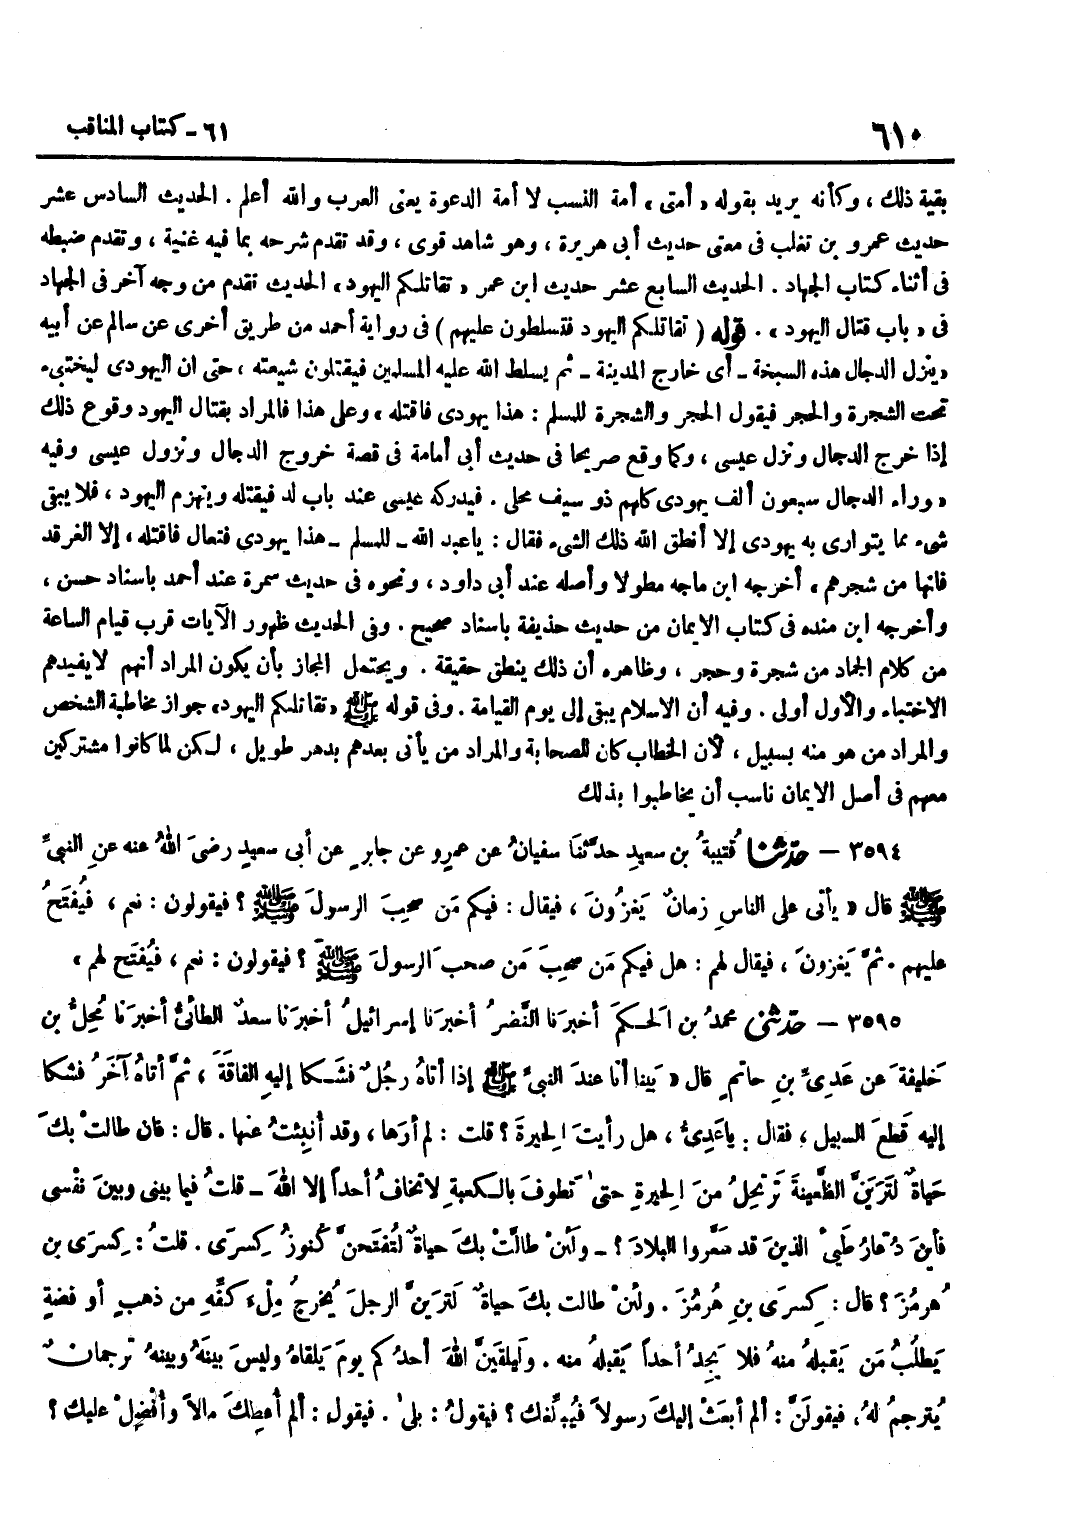 ٦١٠
٦١ ـ كتاب المناقب
بقية ذلك ، وكأنه يريد بقوله « أمتى » أمة النسب لا أمة الدعوة يعنى العرب والله أعلم . الحديث السادس عشر
حديث عمرو بن تغلب فى معنى حديث أبى هريرة ، وهو شاهد قوى ، وقد تقدم شرحه بما فيه غنية ، وتقدم ضبطه
فى أثناء كتاب الجهاد . الحديث السابع عشر حديث ابن عمر « تقاتلكم اليهود » الحديث تقدم من وجه آخر فى الجهاد
فى « باب قتال اليهود » . قوله ( تقاتلكم اليهود فتسلطون عليهم ) فى رواية أحمد من طريق أخرى عن سالم عن أبيه
« ينزل الدجال هذه السبخة ـ أى خارج المدينة ـ ثم يسلط الله عليه المسلمين فيقتلون شيعته ، حتى ان اليهودى ليختبىء
تحت الشجرة والحجر فيقول الحجر والشجرة للمسلم : هذا يهودى فاقتله » وعلى هذا فالمراد بقتال اليهود وقوع ذلك
إذا خرج الدجال ونزل عيسى ، وكما وقع صريحا فى حديث أبى أمامة فى قصة خروج الدجال ونزول عيسى وفيه
« وراء الدجال سبعون ألف يهودى كلهم ذو سيف محلى . فيدركه عيسى عند باب لد فيقتله وينهزم اليهود ، فلا يبقى
شىء مما يتوارى به يهودى إلا أنطق الله ذلك الشىء فقال : ياعبد الله ـ للمسلم ـ هذا يهودى فتعال فاقتله ، إلا الغرقد
فانها من شجرهم » أخرجه ابن ماجه مطولا وأصله عند أبى داود ، ونحوه فى حديث سمرة عند أحمد باسناد حسن ،
وأخرجه ابن منده فى كتاب الايمان من حديث حذيفة باسناد صحيح . وفى الحديث ظهور الآيات قرب قيام الساعة
من كلام الجماد من شجرة وحجر ، وظاهره أن ذلك ينطق حقيقة . ويحتمل المجاز بأن يكون المراد أنهم لايفيدهم
الاختباء والأول أولى . وفيه أن الاسلام يبقى إلى يوم القيامة . وفى قوله ﷺ « تقاتلكم اليهود » جواز مخاطبة الشخص
والمراد من هو منه بسبيل ، لأن الخطاب كان للصحابة والمراد من يأتى بعدهم بدهر طويل ، لـكن لما كانوا مشتركين
معهم فى أصل الايمان ناسب أن يخاطبوا بذلك
٣٥٩٤ – حدّثنا قُتيبةُ بن سعيدٍ حدَّثنا سفيانُ عن عمرٍو عن جابرٍ عن أبى سعيدٍ رضىَ اللهُ عنه عنِ النبىِّ
ﷺ قال « يأتى على الناسِ زمانٌ يَغزُونَ ، فيقال : فيكم مَن صحِبَ الرسولَ ﷺ ؟ فيقولون : نعم ، فيُفتَحُ
عليهم . ثمَّ يَغزونَ ، فيقال لهم : هل فيكم مَن صحِبَ مَن صحب الرسولَ ﷺ ؟ فيقولون : نعم ، فيُفتَح لهم »
٣٥٩٥ – حدّثنى محمدُ بن الحـكمِ أخبرَنا النَّضرُ أخبرَنا إسرائيلُ أخبرَنا سعدٌ الطائىُّ أخبرَنا مُحِلُّ بن
خَليفةَ عن عَدِىِّ بنِ حاتمٍ قال « بَينا أنا عندَ النبىِّ ﷺ إذا أتاهُ رجُلٌ فشَـكا إليهِ الفاقَةَ ، ثمَّ أتاهُ آخَرُ فشكا
إليه قَطعَ السبيل ، فقال : ياعَدِىُّ ، هل رأيتَ الحِيرةَ ؟ قلت : لم أرَها ، وقد أُنبِئتُ عنها . قال : فان طالتْ بكَ
حياةٌ لَتَرَينَّ الظَّعينةَ تَرتحِلُ منَ الحِيرةِ حتى تَطوفَ بالـكعبةِ لاتخافُ أحداً إلا اللهَ ـ قلتُ فيما بينى وبينَ نفْسى
فأينَ دُعّارُ طَيِّئٍ الذينَ قد سَعَّروا البلادَ ؟ ـ ولَئنْ طالَتْ بكَ حياةٌ لتُفتَحنَّ كُنوزُ كِسرَى . قلتُ : كِسرَى بن
هُرمُزَ ؟ قال : كِسرَى بنِ هُرمُزَ . ولئنْ طالت بكَ حياةٌ لَترَينَّ الرجلَ يُخرجُ مِلْءَ كفِّهِ من ذهبٍ أو فضةٍ
يَطلُبُ مَن يَقبلهُ منهُ فلا يَجِدُ أحداً يَقبلهُ منه . ولَيلقَينَّ اللهَ أحدُكم يومَ يَلقاهُ وليسَ بينَهُ وبينهُ ترجمانٌ
يُترجمُ لهُ ، فيقولَنَّ : ألم أبعَثْ إليكَ رسولاً فيُبلِّغك ؟ فيقولُ : بلى . فيقول : ألم أُعطِكَ مالاً وأُفْضِلْ عليك ؟